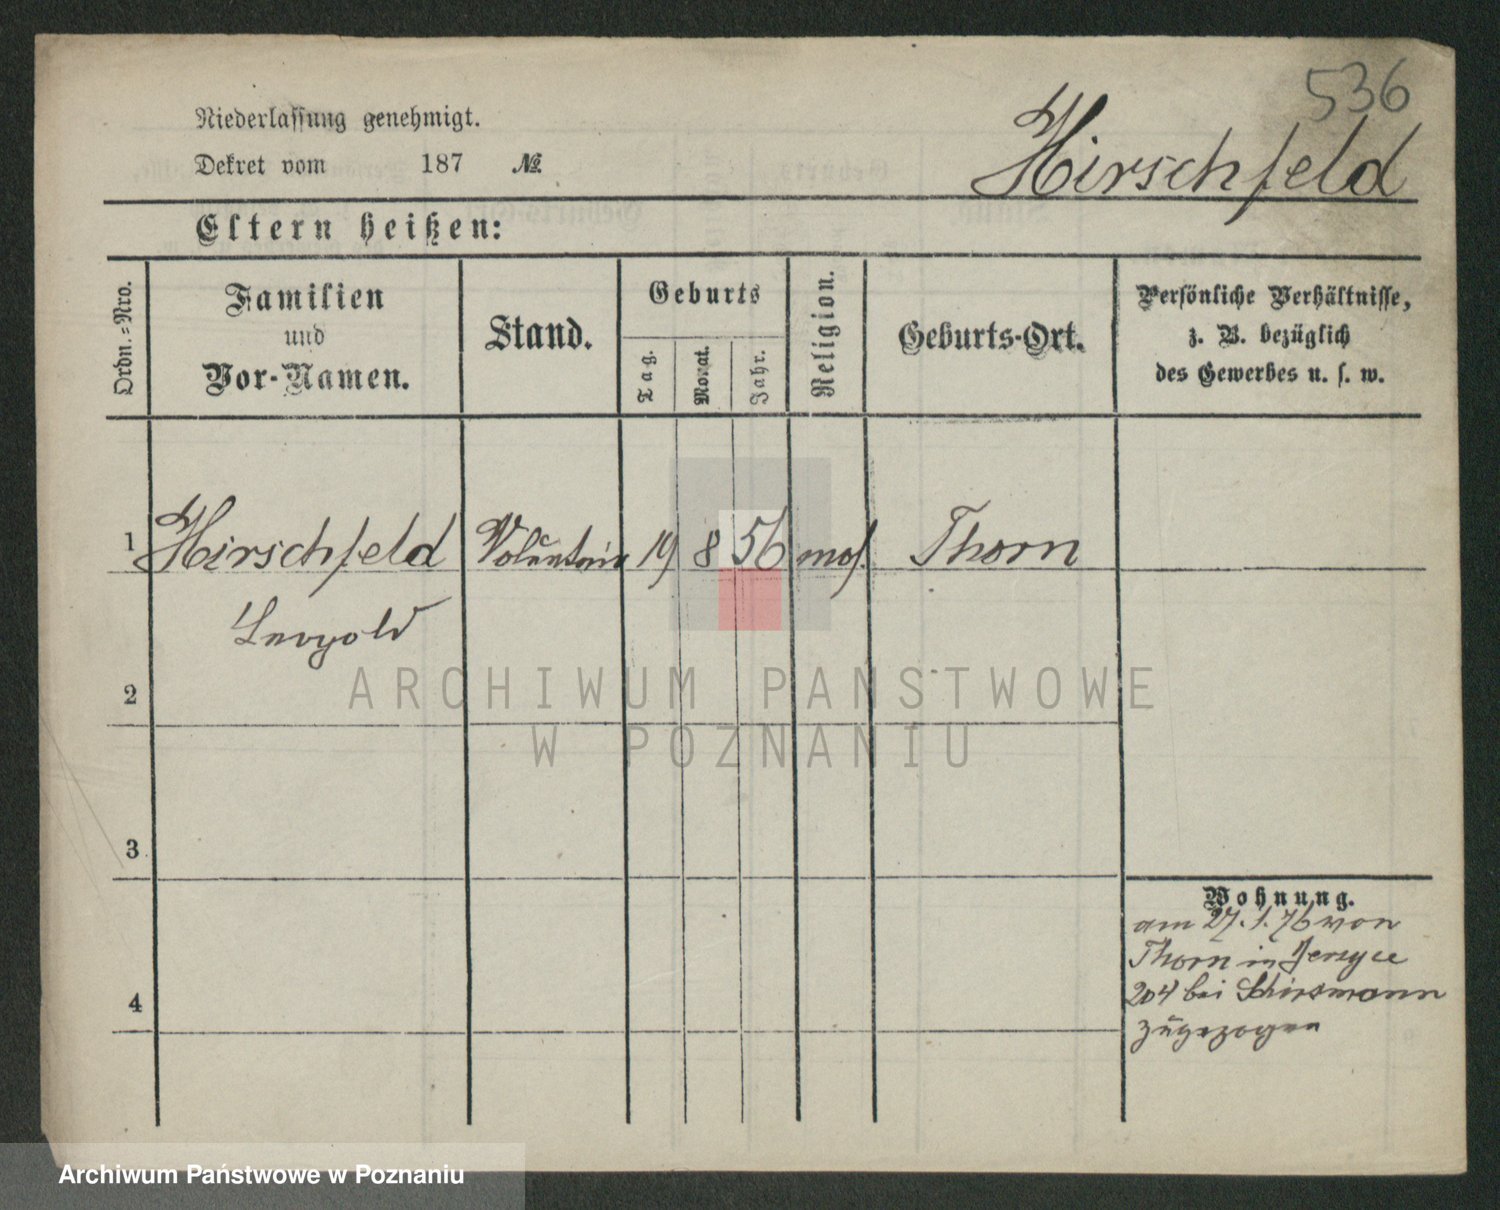 536
Hirschfeld
Niederlassung genehmigt.
Dekret vom 187 №
Eltern heißen:
Ordn.=Nro.
Familien
und
Vor-Namen.
Stand.
Geburts
Tag.
Monat.
Jahr.
Religion.
Geburts-Ort.
Persönliche Verhältnisse,
z. B. bezüglich
des Gewerbes u. s. w.
1 Hirschfeld Volontair 19 8 56 mos. Thorn
Leopold
2
3
4
Wohnung.
am 27.1.76 von
Thorn in Jersyce
204 bei
zugezogen
ARCHIWUM PAŃSTWOWE
W POZNANIU
Archiwum Państwowe w Poznaniu